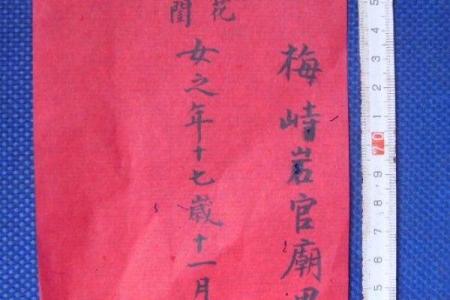 梅峙岩官廟
花
閏
女之年十七歲十一月